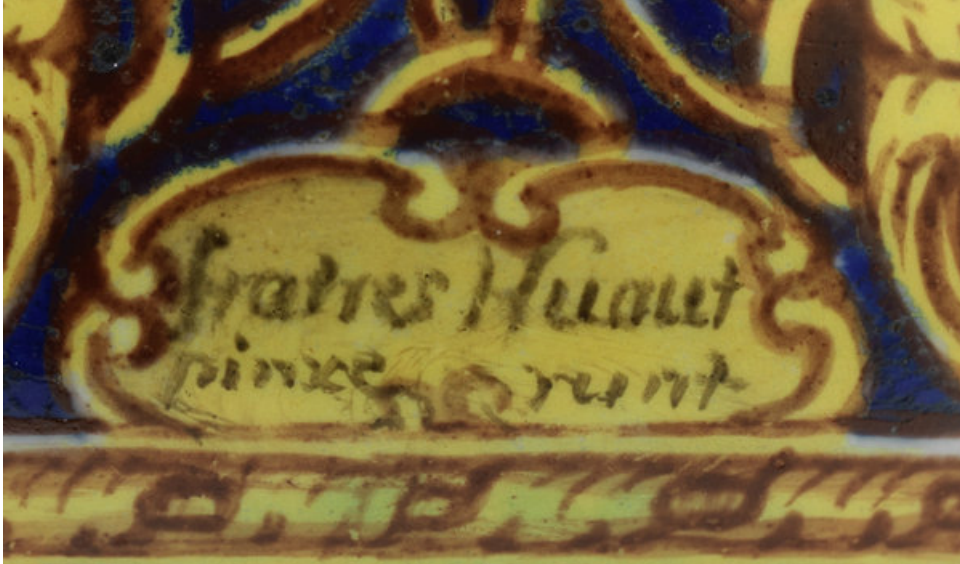 fratres Huaut
pinxe runt